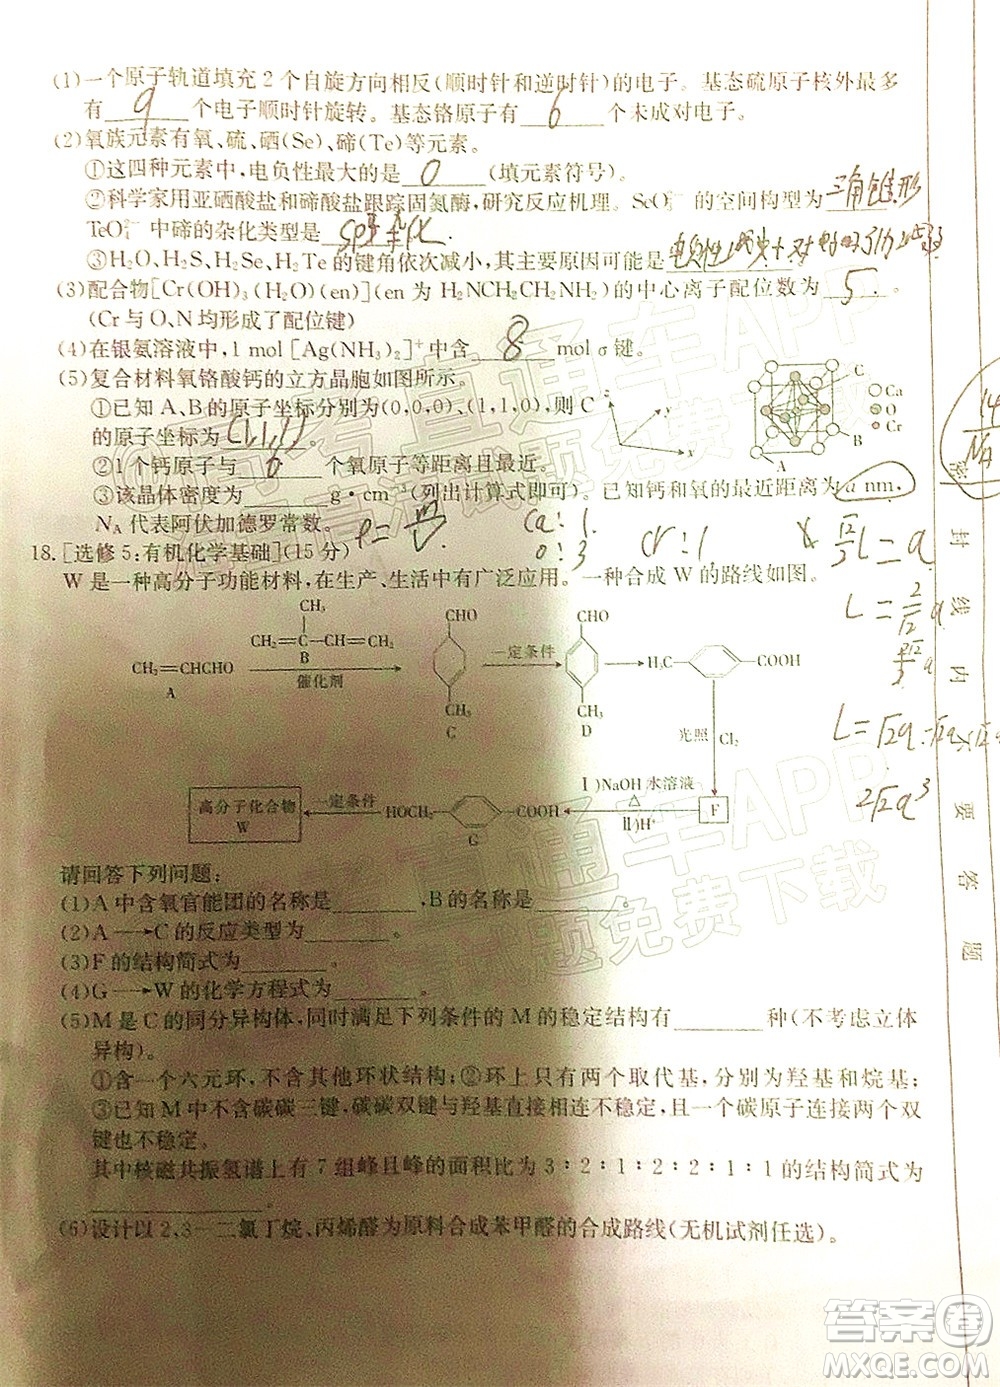 (1)一个原子轨道填充2个自旋方向相反(顺时针和逆时针)的电子。基态硫原子核外最多
有 9 个电子顺时针旋转。基态铬原子有 6 个未成对电子。
(2)氧族元素有氧、硫、硒(Se)、碲(Te)等元素。
①这四种元素中,电负性最大的是 O (填元素符号)。
②科学家用亚硒酸盐和碲酸盐跟踪固氮酶,研究反应机理。SeO₃²⁻的空间构型为 三角锥形
TeO₄²⁻中碲的杂化类型是
③H₂O、H₂S、H₂Se、H₂Te的键角依次减小,其主要原因可能是
(3)配合物[Cr(OH)₃(H₂O)(en)](en为H₂NCH₂CH₂NH₂)的中心离子配位数为 5 。
(Cr与O、N均形成了配位键)
(4)在银氨溶液中,1 mol[Ag(NH₃)₂]⁺中含 8 mol σ键。
(5)复合材料氧铬酸钙的立方晶胞如图所示。
①已知A、B的原子坐标分别为(0,0,0)、(1,1,0),则C
的原子坐标为 (1,1,1) 。
②1个钙原子与 6 个氧原子等距离且最近。
③该晶体密度为 g·cm⁻³(列出计算式即可)。已知钙和氧的最近距离为a nm,
N_A代表阿伏加德罗常数。
z
y
x
C
B
A
Ca
O
Cr
ρ=m/V
Ca:1
O:3
Cr:1
18.[选修5:有机化学基础](15分)
W是一种高分子功能材料,在生产、生活中有广泛应用。一种合成W的路线如图。
CH₂=CHCHO
A
CH₃
CH₂=C-CH=CH₂
B
催化剂
CHO
CH₃
C
一定条件
CHO
CH₃
D
H₃C
COOH
光照
Cl₂
F
Ⅰ)NaOH水溶液
△
Ⅱ)H⁺
HOCH₂
COOH
G
一定条件
高分子化合物
W
请回答下列问题:
(1)A中含氧官能团的名称是 ,B的名称是 。
(2)A→C的反应类型为 。
(3)F的结构简式为 。
(4)G→W的化学方程式为 。
(5)M是C的同分异构体,同时满足下列条件的M的稳定结构有 种(不考虑立体
异构)。
①含一个六元环,不含其他环状结构;②环上只有两个取代基,分别是羟基和烷基;
③已知M中不含碳碳三键,碳碳双键与羟基直接相连不稳定,且一个碳原子连接两个双
键也不稳定。
其中核磁共振氢谱上有7组峰且峰的面积比为3∶2∶1∶2∶2∶1∶1的结构简式为
。
(6)设计以2,3-二氯丁烷、丙烯醛为原料合成苯甲醛的合成路线(无机试剂任选)。
封
线
内
不
要
答
题
答案圈
MXQE.COM